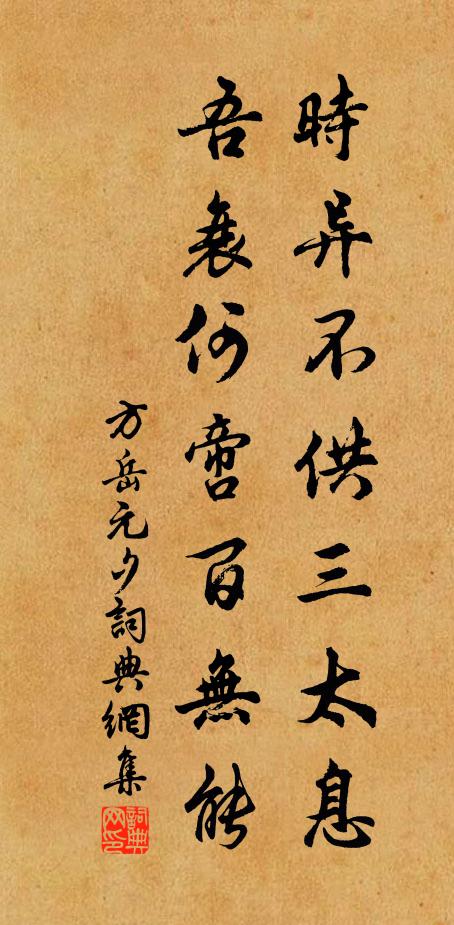 時异不供三太息
吾衰何啻百無能
方岳元夕詞典網集
詞典
网印